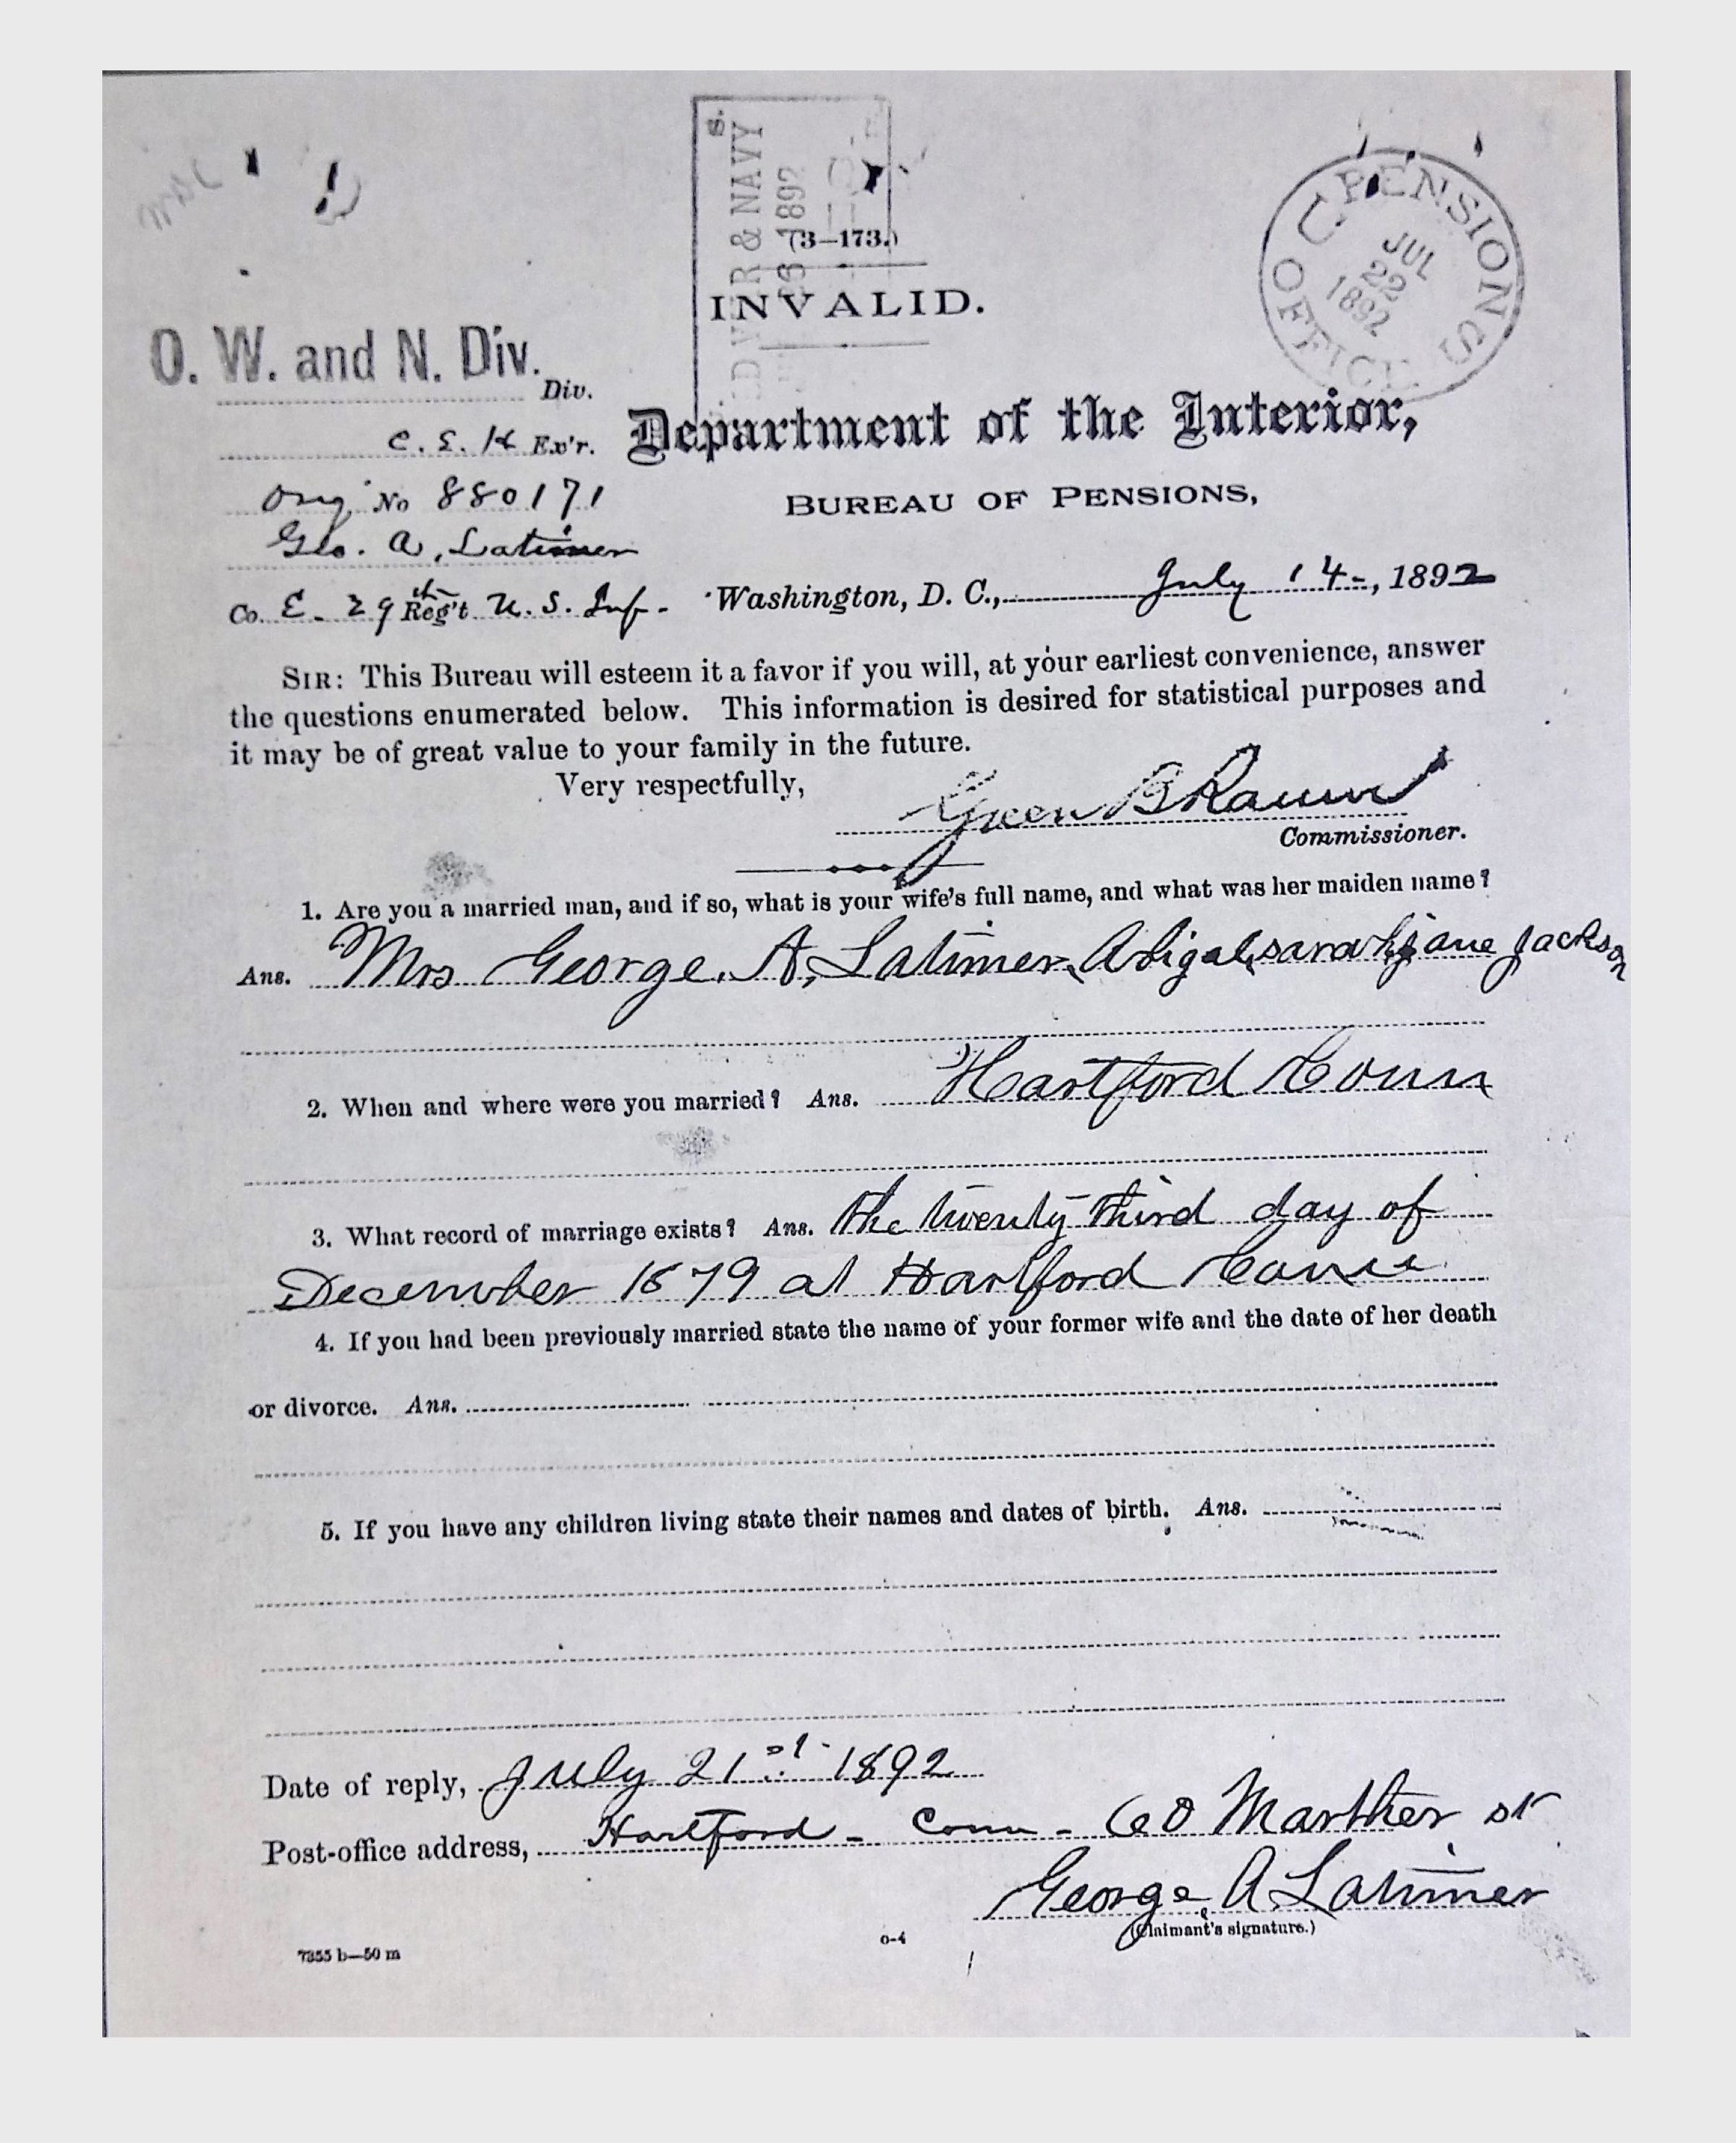 S.
R & NAVY
1892
(3—173.)
INVALID.
U. S. PENSION OFFICE
JUL
22
1892
O. W. and N. Div.
Div.
C. E. K Ex'r.
Department of the Interior,
Orig No 880171
BUREAU OF PENSIONS,
Geo. A. Latimer
Co. E. 29th Reg't U. S. Inf.
Washington, D. C., July 14, 1892
SIR: This Bureau will esteem it a favor if you will, at your earliest convenience, answer
the questions enumerated below. This information is desired for statistical purposes and
it may be of great value to your family in the future.
Very respectfully,
Green B Raum
Commissioner.
1. Are you a married man, and if so, what is your wife's full name, and what was her maiden name?
Ans. Mrs George. A, Latimer, Abigal sarah jane Jackson
2. When and where were you married? Ans. Hartford Conn
3. What record of marriage exists? Ans. the twenty third day of
December 1879 at Hartford Conn
4. If you had been previously married state the name of your former wife and the date of her death
or divorce. Ans.
5. If you have any children living state their names and dates of birth. Ans.
Date of reply, July 21st 1892
Post-office address, Hartford - Conn - 60 Marther st
George A Latimer
(Claimant's signature.)
7355 b—50 m
o-4